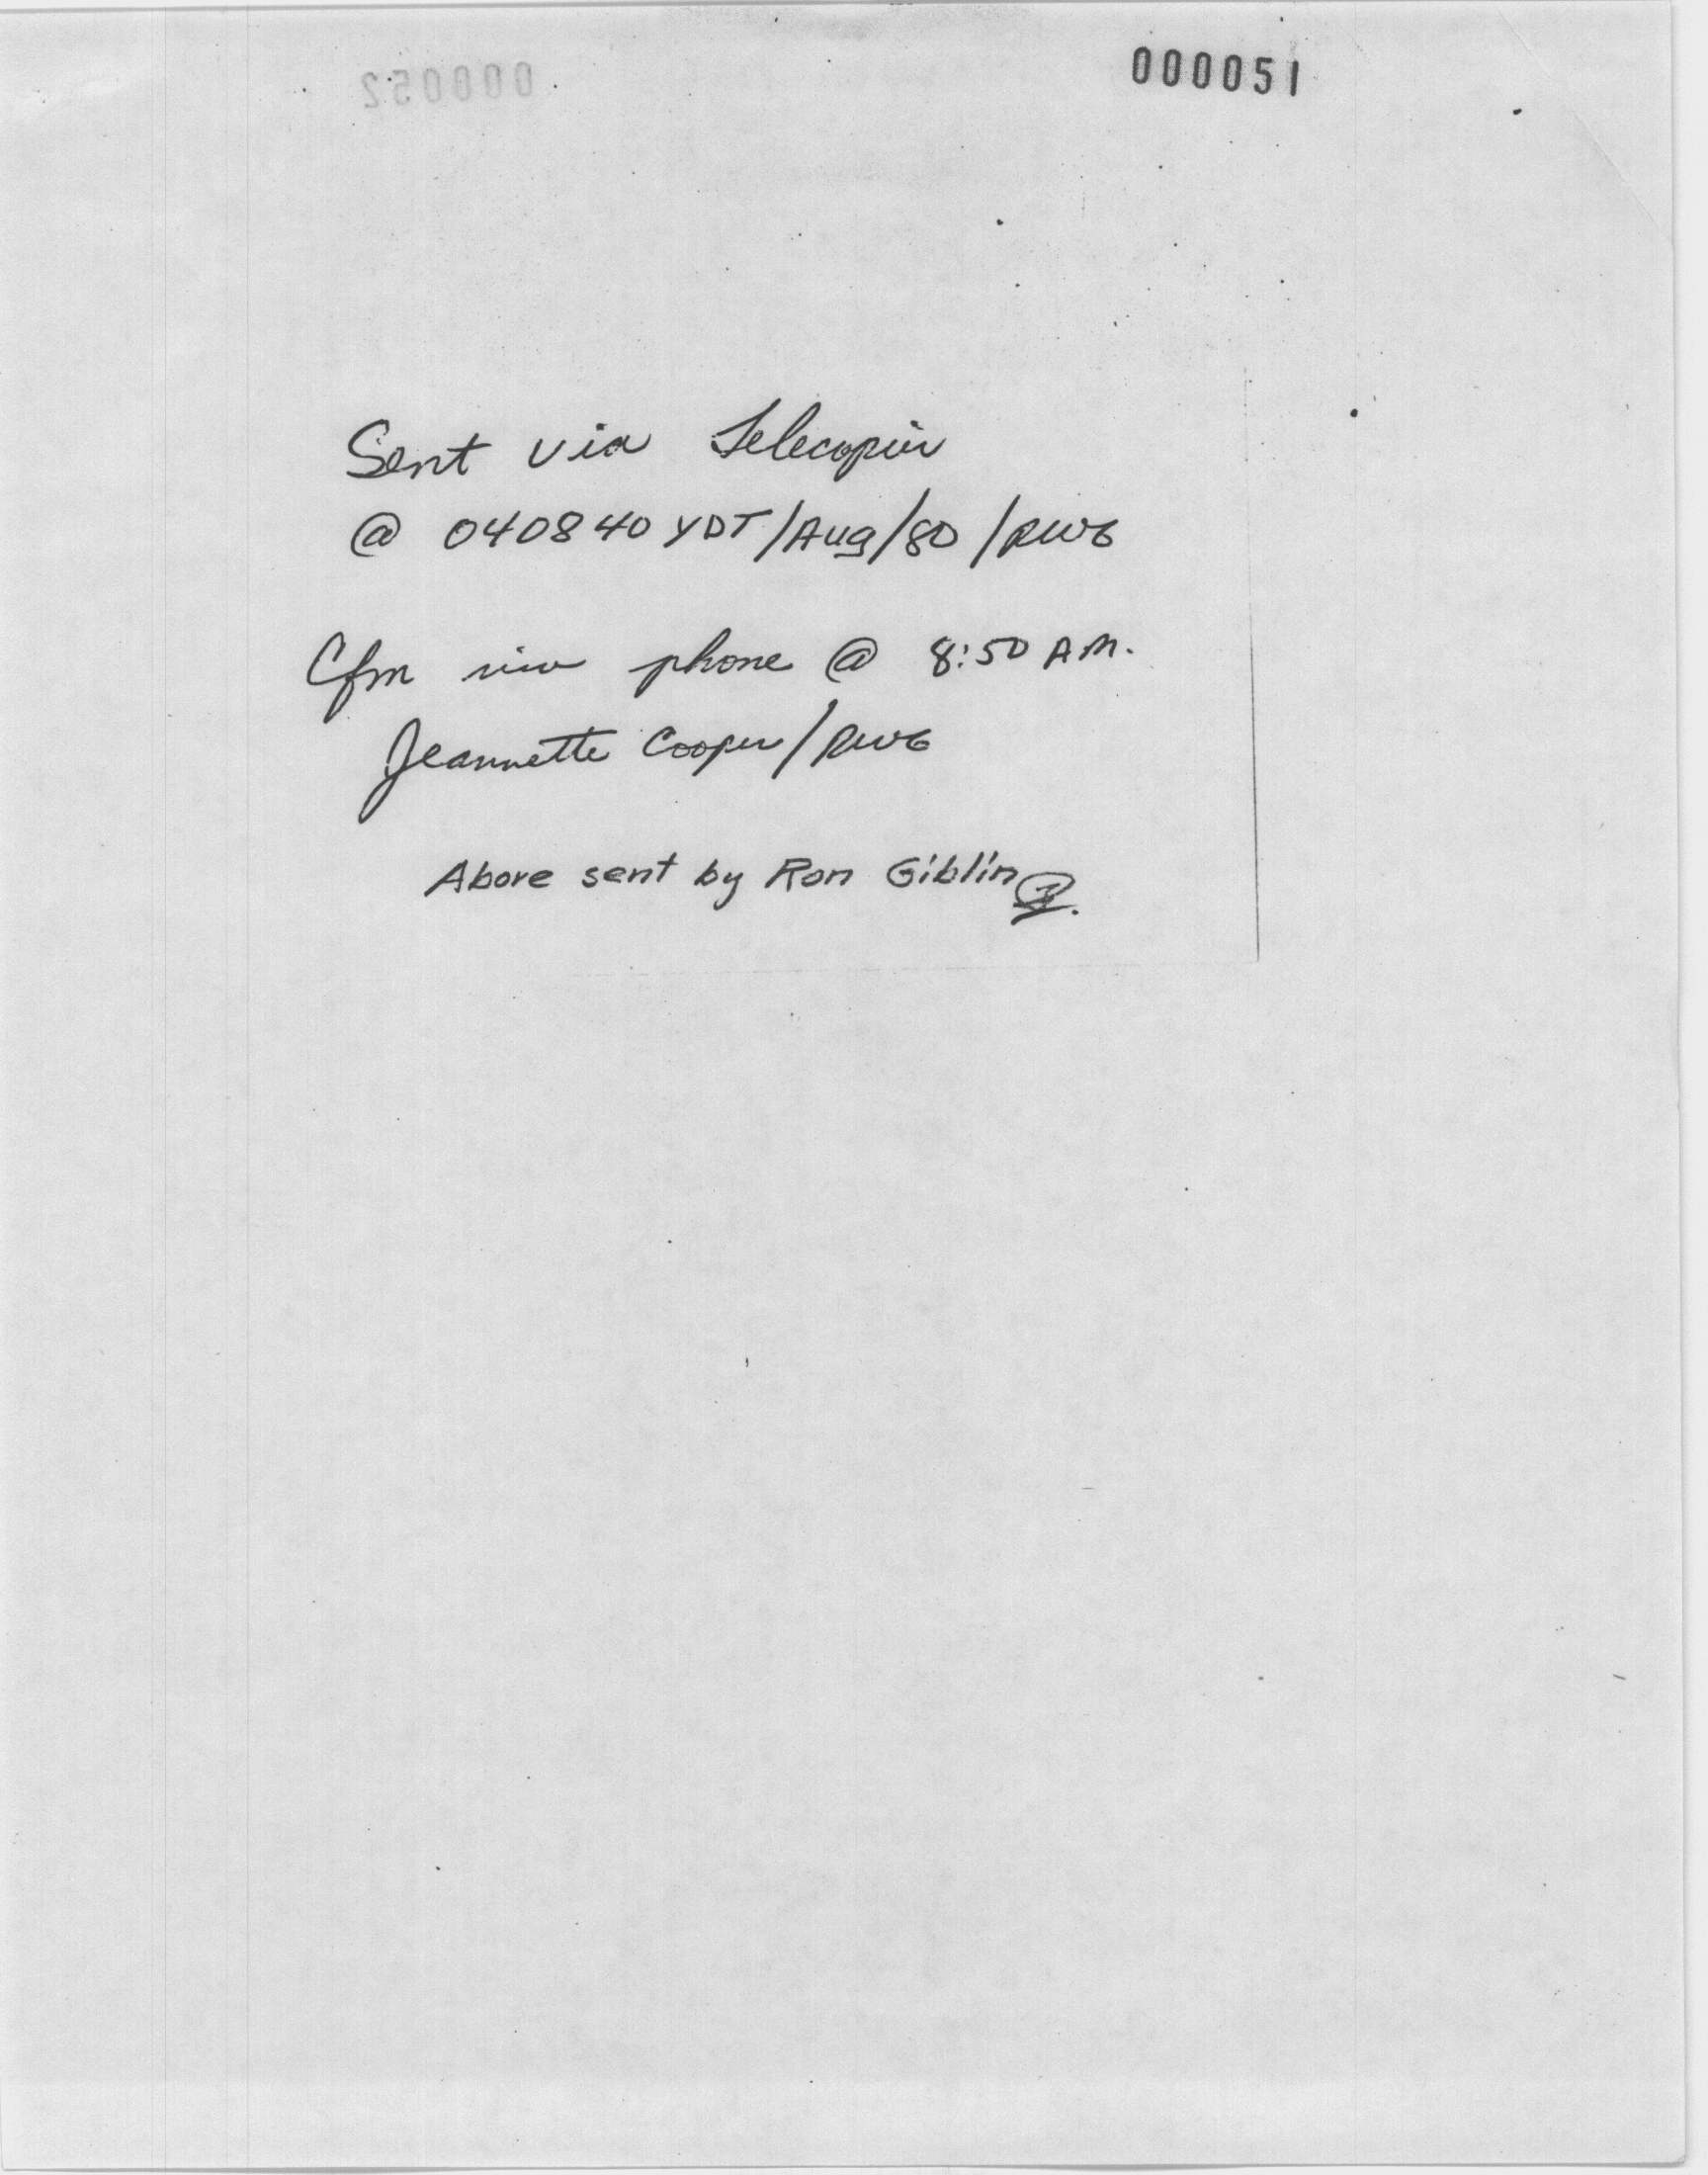 000051
Sent via Telecopier
@ 040840 YDT/Aug/80/RWG
Cfm via phone @ 8:50 A.M.
Jeannette Cooper/RWG
Above sent by Ron Giblin